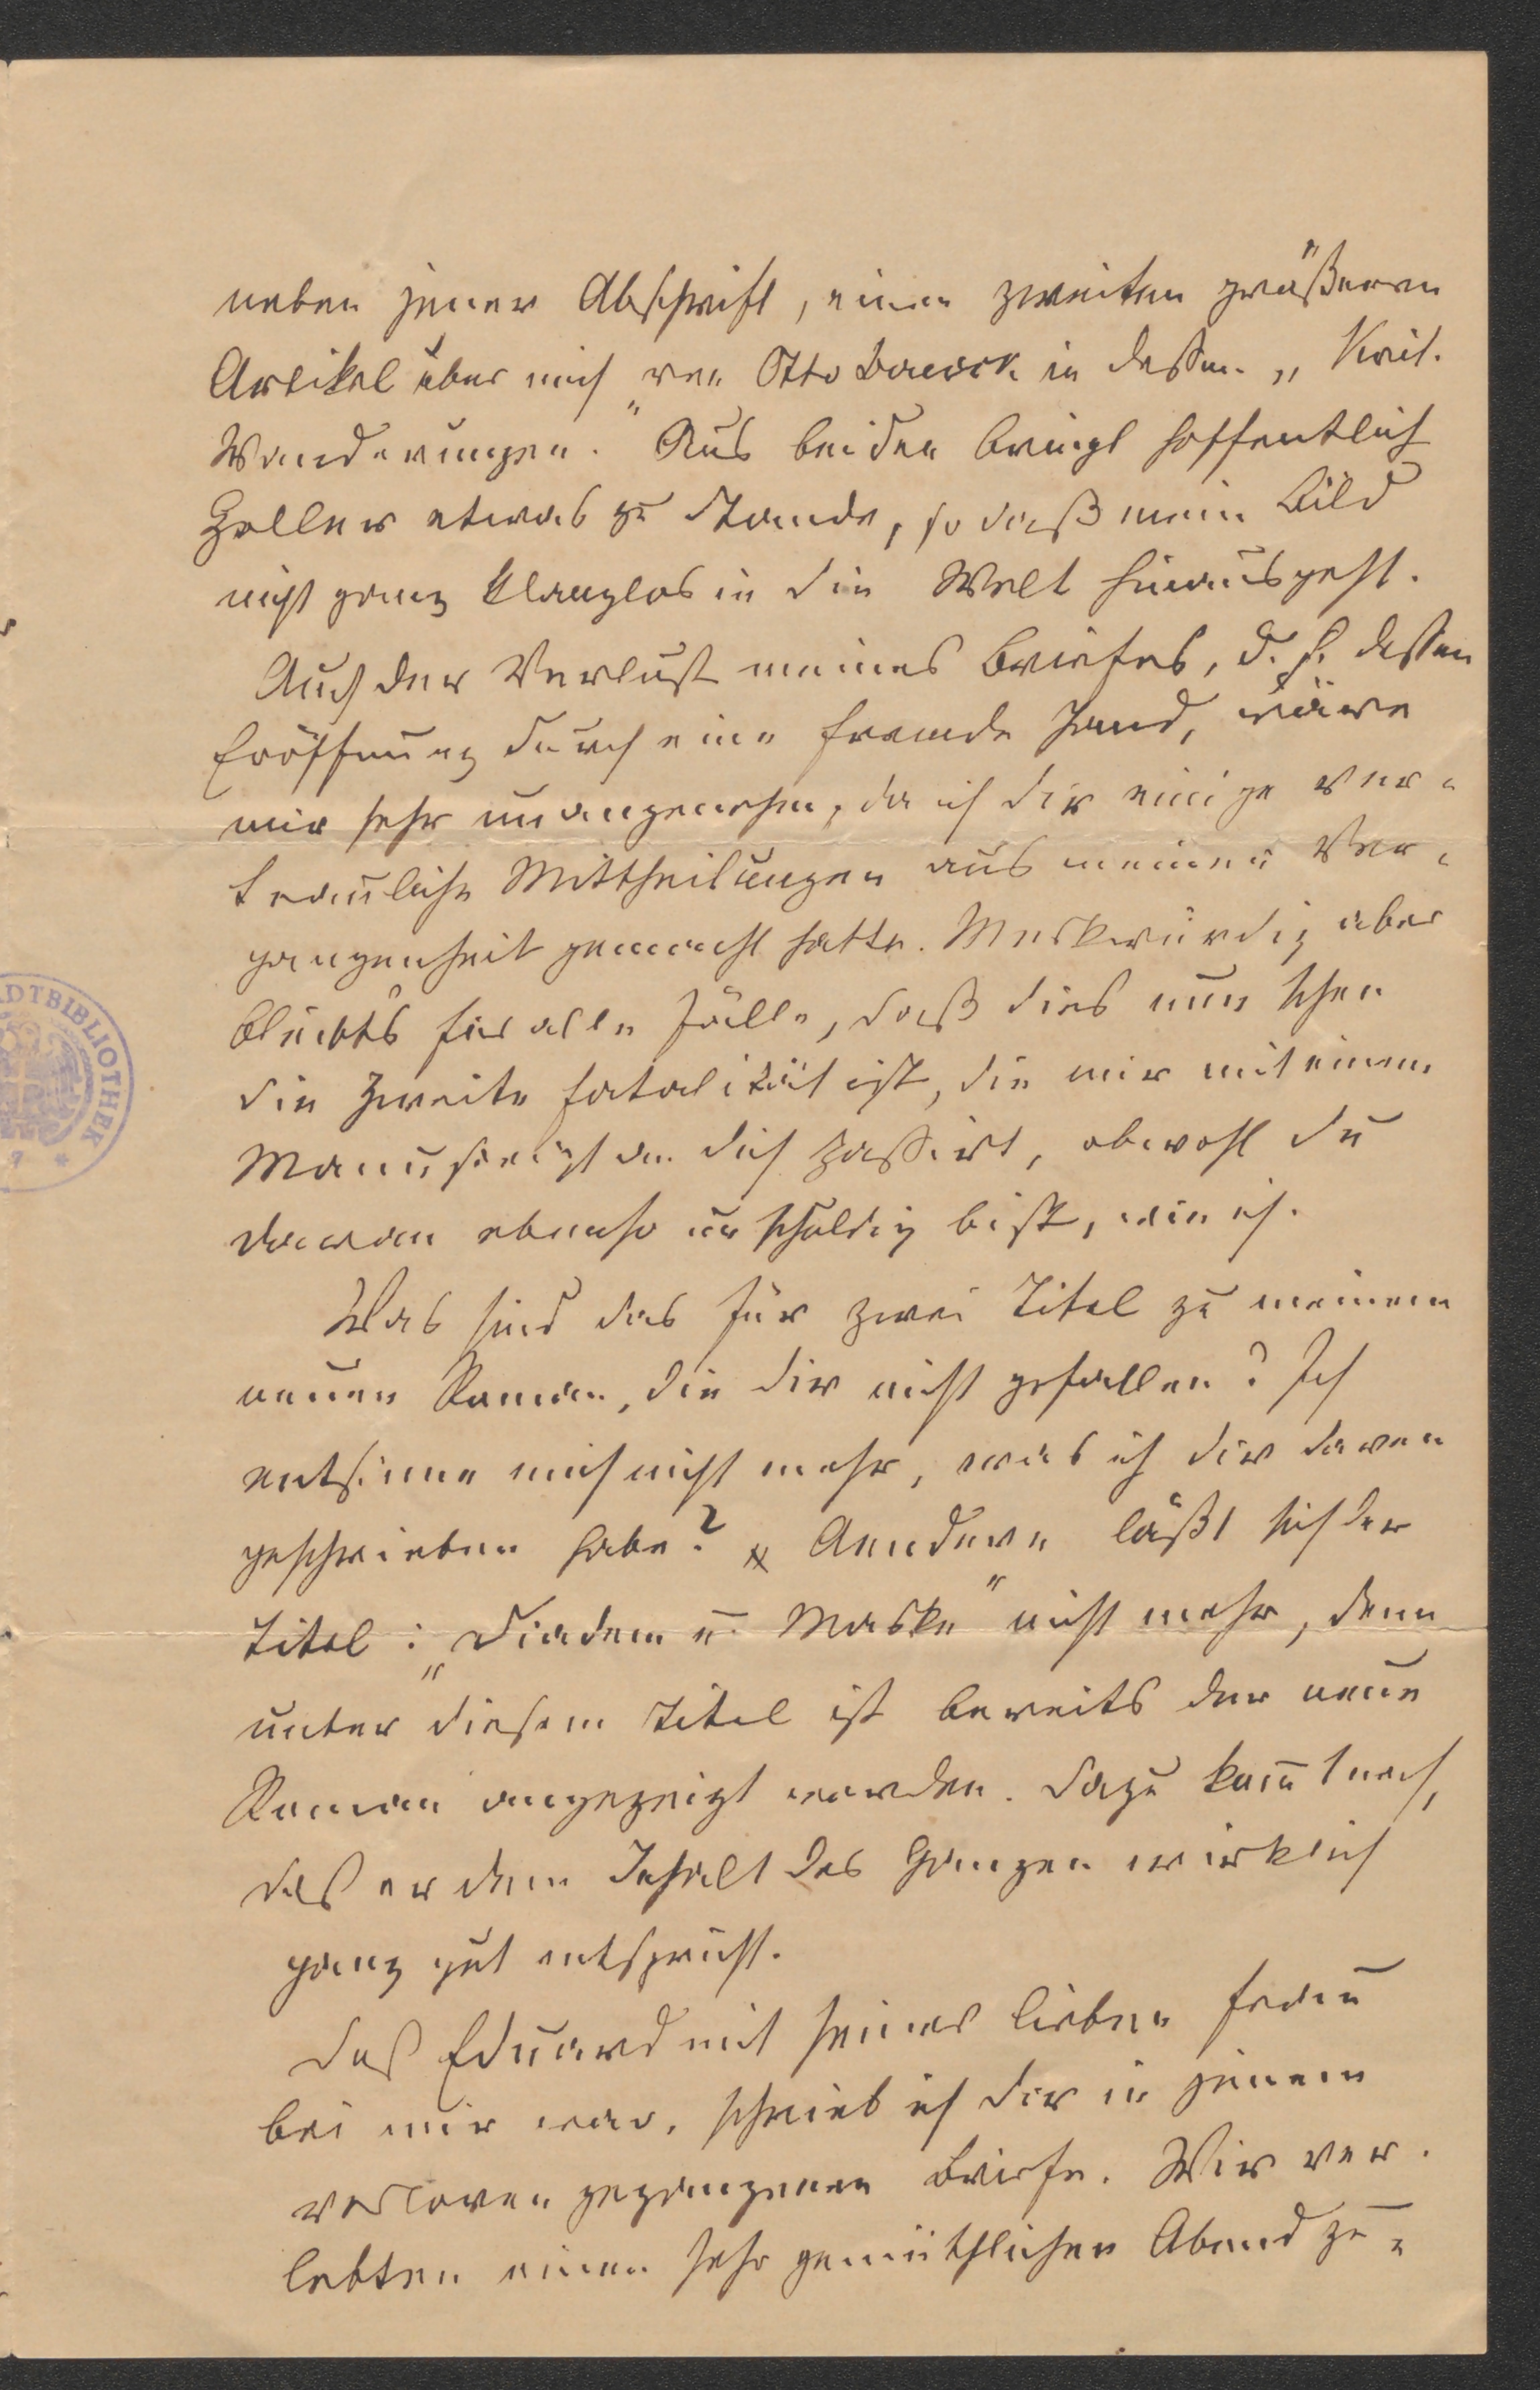 neben jener Abschrift, einen zweiten größeren
Artikel über mich von Otto Banck in dessen „Krit.
Wanderungen." Aus beiden bringt hoffentlich
Zoller etwas zu Stande, so daß mein Bild
nicht ganz klanglos in die Welt hinausgeht.
Auch der Verlust meines Briefes, d. h. dessen
Eröffnung durch eine fremde Hand, wäre
mir sehr unangenehm, da ich dir einige ver-
trauliche Mittheilungen aus meiner Ver-
gangenheit gemacht hatte. Merkwürdig aber
bleibts für alle Fälle, daß dies nun schon
die zweite Fatalität ist, die mir mit einem
Manuscript an dich passirt, obwohl du
daran ebenso unschuldig bist, wie ich.
Was sind das für zwei Titel zu meinem
neuen Roman, die dir nicht gefallen? Ich
entsinne mich nicht mehr, was ich dir davon
geschrieben habe? Aendern läßt sich der
Titel: „Diadem u. Maske" nicht mehr, denn
unter diesem Titel ist bereits der neue
Roman angezeigt worden. Dazu kom̅t noch,
daß er dem Inhalt des Ganzen wirklich
ganz gut entspricht.
Daß Eduard mit seiner lieben Frau
bei mir war, schrieb ich dir in jenem
verloren gegangenen Briefe. Wir ver-
lebten einen sehr gemüthlichen Abend zu-
ADTBIBLIOTHEK